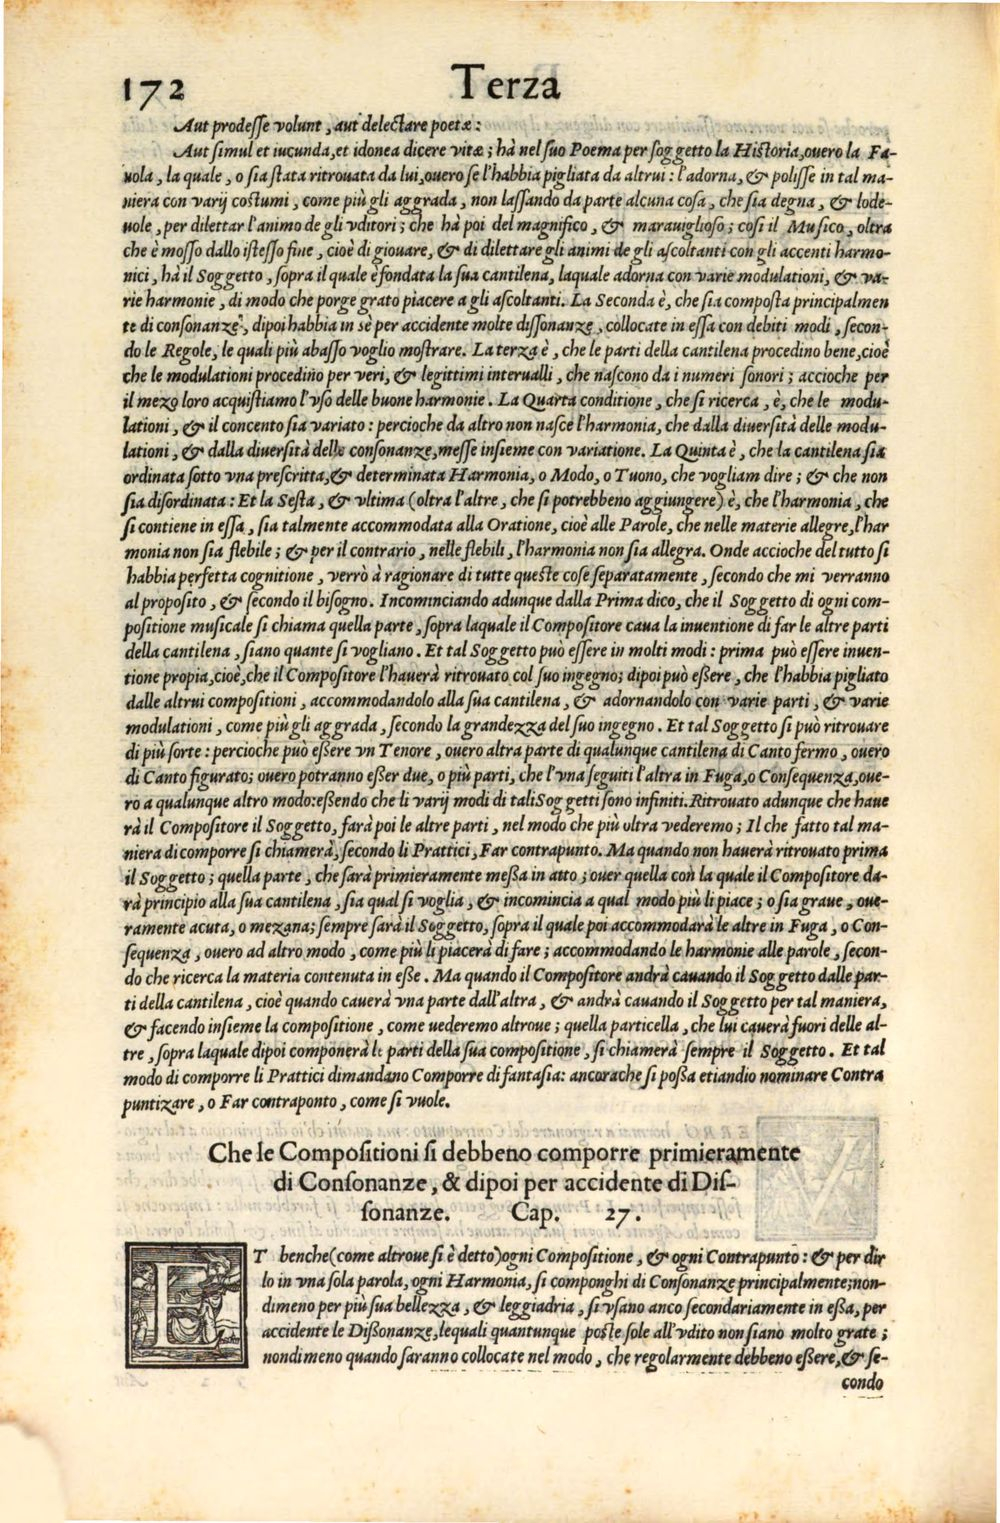 172 Terza
Aut prodeſſe volunt, aut delectare poetæ:
Aut ſimul et iucunda, et idonea dicere vitæ; hà nel ſuo Poema per ſoggetto la Hiſtoria, ouero la Fa-
uola, la quale, o ſia ſtata ritrouata da lui, ouero ſe l'habbia pigliata da altrui: l'adorna, & poliſſe in tal ma-
niera con varij coſtumi, come più gli aggrada, non laſſando da parte alcuna coſa, che ſia degna, & lode-
uole, per dilettar l'animo de gli vditori; che hà poi del magnifico, & marauiglioſo; coſi il Muſico, oltra
che è moſſo dallo iſteſſo fine, cioè di giouare, & di dilettare gli animi de gli aſcoltanti con gli accenti harmo-
nici, hà il Soggetto, ſopra il quale è fondata la ſua cantilena, laquale adorna con varie modulationi, & va-
rie harmonie, di modo che porge grato piacere a gli aſcoltanti. La Seconda è, che ſia compoſta principalmen
te di conſonanze, dipoi habbia in sè per accidente molte diſſonanze, collocate in eſſa con debiti modi, ſecon-
do le Regole, le quali più abaſſo voglio moſtrare. La terza è, che le parti della cantilena procedino bene, cioè
che le modulationi procedino per veri, & legittimi interualli, che naſcono da i numeri ſonori; accioche per
il mezo loro acquiſtiamo l'vſo delle buone harmonie. La Quarta conditione, che ſi ricerca, è, che le modu-
lationi, & il concento ſia variato: percioche da altro non naſce l'harmonia, che dalla diuerſità delle modu-
lationi, & dalla diuerſità delle conſonanze, meſſe inſieme con variatione. La Quinta è, che la cantilena ſia
ordinata ſotto vna preſcritta, & determinata Harmonia, o Modo, o Tuono, che vogliam dire; & che non
ſia diſordinata: Et la Seſta, & vltima (oltra l'altre, che ſi potrebbeno aggiungere) è, che l'harmonia, che
ſi contiene in eſſa, ſia talmente accommodata alla Oratione, cioè alle Parole, che nelle materie allegre, l'har
monia non ſia flebile; & per il contrario, nelle flebili, l'harmonia non ſia allegra. Onde accioche del tutto ſi
habbia perfetta cognitione, verrò à ragionare di tutte queſte coſe ſeparatamente, ſecondo che mi verranno
al propoſito, & ſecondo il biſogno. Incominciando adunque dalla Prima dico, che il Soggetto di ogni com-
poſitione muſicale ſi chiama quella parte, ſopra laquale il Compoſitore caua la inuentione di far le altre parti
della cantilena, ſiano quante ſi vogliano. Et tal Soggetto può eſſere in molti modi: prima può eſſere inuen-
tione propia, cioè, che il Compoſitore l'hauerà ritrouato col ſuo ingegno; dipoi può eßere, che l'habbia pigliato
dalle altrui compoſitioni, accommodandolo alla ſua cantilena, & adornandolo con varie parti, & varie
modulationi, come più gli aggrada, ſecondo la grandezza del ſuo ingegno. Et tal Soggetto ſi può ritrouare
di più ſorte: percioche può eßere vn Tenore, ouero altra parte di qualunque cantilena di Canto fermo, ouero
di Canto figurato; ouero potranno eßer due, o più parti, che l'vna ſeguiti l'altra in Fuga, o Conſequenza, oue-
ro a qualunque altro modo: eßendo che li varij modi di tali Soggetti ſono infiniti. Ritrouato adunque che haue
rà il Compoſitore il Soggetto, farà poi le altre parti, nel modo che più oltra vederemo; Il che fatto tal ma-
niera di comporre ſi chiamerà, ſecondo li Prattici, Far contrapunto. Ma quando non hauerà ritrouato prima
il Soggetto; quella parte, che ſarà primieramente meßa in atto; ouer quella con la quale il Compoſitore da-
rà principio alla ſua cantilena, ſia qual ſi voglia, & incomincia a qual modo più li piace; o ſia graue, oue-
ramente acuta, o mezana; ſempre ſarà il Soggetto, ſopra il quale poi accommodarà le altre in Fuga, o Con-
ſequenza, ouero ad altro modo, come più li piacerà di fare; accommodando le harmonie alle parole, ſecon-
do che ricerca la materia contenuta in eße. Ma quando il Compoſitore andrà cauando il Soggetto dalle par-
ti della cantilena, cioè quando cauerà vna parte dall'altra, & andrà cauando il Soggetto per tal maniera,
& facendo inſieme la compoſitione, come uederemo altroue; quella particella, che lui cauerà fuori delle al-
tre, ſopra laquale dipoi componerà le parti della ſua compoſitione, ſi chiamerà ſempre il Soggetto. Et tal
modo di comporre li Prattici dimandano Comporre di fantaſia: ancorache ſi poßa etiandio nominare Contra
puntizare, o Far contraponto, come ſi vuole.
Che le Compoſitioni ſi debbeno comporre primieramente
di Conſonanze, & dipoi per accidente di Diſ-
ſonanze. Cap. 27.
ET benche (come altroue ſi è detto) ogni Compoſitione, & ogni Contrapunto: & per dir
lo in vna ſola parola, ogni Harmonia, ſi componghi di Conſonanze principalmente; non-
dimeno per più ſua bellezza, & leggiadria, ſi vſano anco ſecondariamente in eßa, per
accidente le Dißonanze, lequali quantunque poſte ſole all'vdito non ſiano molto grate;
nondimeno quando ſaranno collocate nel modo, che regolarmente debbeno eßere, & ſe-
condo